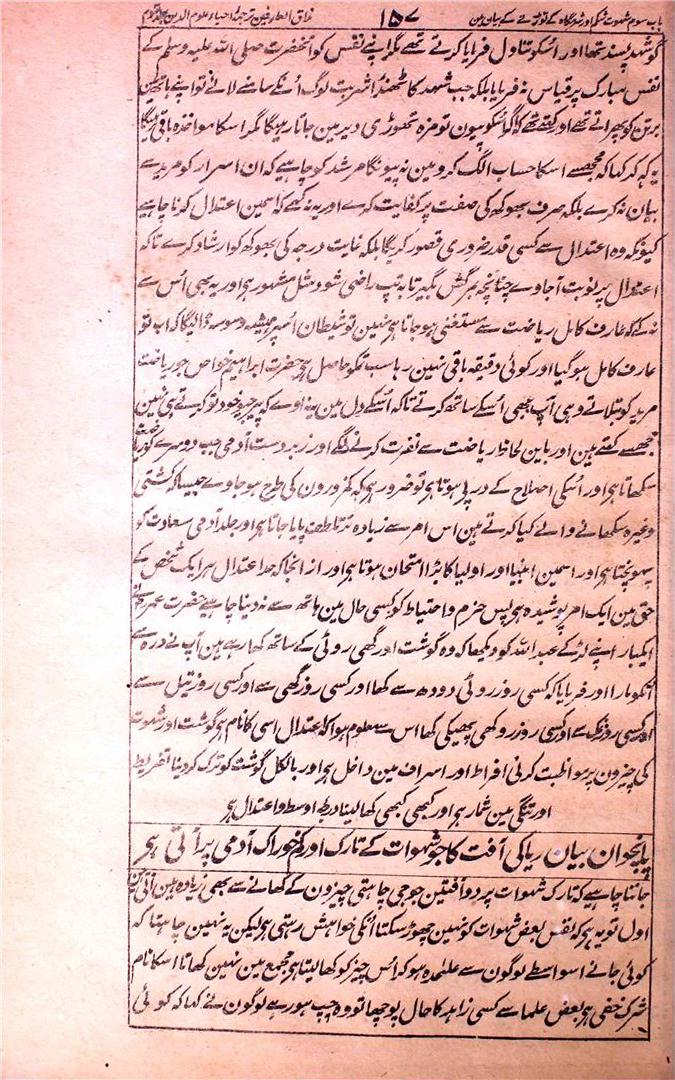 باب سوم شہوت شکم اور شرمگاہ کے توڑنے کے بیان مین ۱۵۷ مذاق العارفین ترجمہ احیاء علوم الدین جلد سوم
کو شہد پسند تھا اور اُسکو تناول فرمایا کرتے تھے مگر اپنے نفس کو آنحضرت صلی اللہ علیہ وسلم کے
نفس مبارک پر قیاس نہ فرمایا بلکہ جب شہد کا ٹھنڈا شربت لوگ اُنکے سامنے لائے تو اپنے ہاتھ مین
برتن کو پھراتے تھے اور کہتے تھے کہ اگر اسکو پیون تو مزہ تھوڑی دیر مین جاتا رہیگا مگر اسکا مواخذہ باقی رہیگا
یہ کہہ کر کہا کہ مجھسے اسکا حساب الگ کرو مین نہ پیونگا مرشد کو چاہیے کہ ان اسرار کو مرید سے
بیان نہ کرے بلکہ صرف بھوکھ کی صفت پر کفایت کرے اور یہ نہ کہے کہ اسمین اعتدال کرنا چاہیے
کیونکہ وہ اعتدال سے کسی قدر ضروری قصور کریگا بلکہ غایت درجہ کی بھوکھ کو ارشاد کرے تاکہ
اعتدال پر نوبت آجاوے چنانچہ بمرگش بگیر تا بہ تپ راضی شود مثل مشہور ہی اور یہ بھی اُس سے
نہ کہے کہ عارف کامل ریاضت سے مستغنی ہو جاتا ہی نہین تو شیطان اُسپر ہمیشہ وسوسہ ڈالیگا کہ اب تو
عارف کامل ہو گیا اور کوئی دقیقہ باقی نہین رہا سب تمکو حاصل ہی حضرت ابراہیم خواص جو ریاضت
مرید کو بتلاتے وہی آپ بھی اُسکے ساتھ کرتے تاکہ اُسکے دل مین یہ نہ آوے کہ پیر جیو خود تو کرتے ہی نہین
مجھسے کہتے ہین اور باین لحاظ ریاضت سے نفرت کرنے لگے اور زبردست آدمی جب دوسرے کو ریاضت
سکھاتا ہی اور اُسکی اصلاح کے درپے ہوتا ہی تو ضرور ہی کہ کمزورون کی طرح ہو جاوے جیسا کہ کشتی
وغیرہ سکھانے والے کیا کرتے ہین اس امر سے زیادہ تر تلطف پایا جاتا ہی اور جلد آدمی سعادت کو
پہونچتا ہی اور اسمین انبیا اور اولیا کا بڑا امتحان ہوتا ہی اور از انجا کہ حد اعتدال ہر ایک شخص کے
حق مین ایک امر پوشیدہ ہی پس حزم و احتیاط کو کسی حال مین ہاتھ سے نہ دینا چاہیے حضرت عمر رض نے
ایکبار اپنے لڑکے عبد اللہ کو دیکھا کہ وہ گوشت اور گھی روٹی کے ساتھ کھا رہے ہین آپ نے درہ سے
اُنکو مارا اور فرمایا کہ کسی روز روٹی دودھ سے کھا اور کسی روز گھی سے اور کسی روز تیل سے
اور کسی روز نمک سے اور کسی روز روکھی پھیکی کھا اس سے معلوم ہوا کہ اعتدال اسی کا نام ہی گوشت اور شہوت
کی چیزون پر مواظبت کرنی افراط اور اسراف مین داخل ہی اور بالکل گوشت کو ترک کر دینا تفریط
اور تنگی مین شمار ہی اور کبھی کبھی کھا لینا درجہ اوسط و اعتدال ہی
پانچوان بیان ریا کی آفت کا جو شہوات کے تارک اور کم خوراک آدمی پر آتی ہی
جاننا چاہیے کہ تارک شہوات پر دو آفتین جو جی چاہتی چیزون کے کھانے سے بھی زیادہ ہین آتی ہین
اول تو یہ ہی کہ نفس بعض شہوات کو نہین چھوڑ سکتا اُنکی خواہش رہتی ہی لیکن یہ نہین چاہتا کہ
کوئی جانے اسواسطے لوگون سے علٰحدہ ہو کر اُس چیز کو کھا لیتا ہی مجمع مین نہین کھاتا اسکا نام
شرک خفی ہی بعض علما سے کسی زاہد کا حال پوچھا تو وہ چپ ہو رہے لوگون نے کہا کہ کوئی